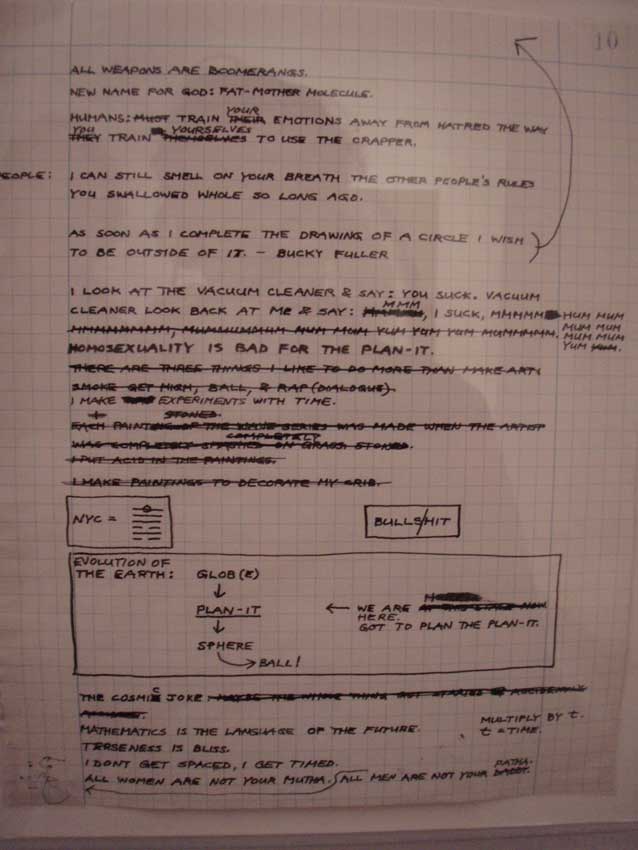 10
ALL WEAPONS ARE BOOMERANGS.
NEW NAME FOR GOD: FAT-MOTHER MOLECULE.
YOUR
HUMANS: MUST TRAIN THEIR EMOTIONS AWAY FROM HATRED THE WAY
YOU YOURSELVES
THEY TRAIN THEMSELVES TO USE THE CRAPPER.
EOPLE: I CAN STILL SMELL ON YOUR BREATH THE OTHER PEOPLE'S RULES
YOU SWALLOWED WHOLE SO LONG AGO.
AS SOON AS I COMPLETE THE DRAWING OF A CIRCLE I WISH
TO BE OUTSIDE OF IT. - BUCKY FULLER
I LOOK AT THE VACUUM CLEANER & SAY: YOU SUCK. VACUUM
MMM
CLEANER LOOK BACK AT ME & SAY: , I SUCK, MMMMM HUM MUM
MUM MUM
MMMMMMMM, MUMMUMMUM MUM MUM YUM YUM YUM MUMMMMM. MUM MUM
YUM YUM.
HOMOSEXUALITY IS BAD FOR THE PLAN-IT.
THERE ARE THREE THINGS I LIKE TO DO MORE THAN MAKE ART:
SMOKE GET HIGH, BALL, & RAP (DIALOGUE).
I MAKE EXPERIMENTS WITH TIME.
STONED.
EACH PAINTING OF THE SERIES WAS MADE WHEN THE ARTIST
COMPLETELY
WAS COMPLETELY ON GRASS. STONED.
I PUT ACID IN THE PAINTINGS.
I MAKE PAINTINGS TO DECORATE MY CRIB.
NYC =
BULLS/HIT
EVOLUTION OF
THE EARTH: GLOB(E)
↓
PLAN-IT ← WE ARE AT THIS STAGE NOW
HERE.
GOT TO PLAN THE PLAN-IT.
↓
SPHERE
→ BALL!
THE COSMIC JOKE: MAYBE THE WHOLE THING GOT STARTED BY ACCIDENTLY
MATHEMATICS IS THE LANGUAGE OF THE FUTURE. MULTIPLY BY t.
t = TIME.
TERSENESS IS BLISS.
I DONT GET SPACED, I GET TIMED.
PATHA.
ALL WOMEN ARE NOT YOUR MUTHA. ALL MEN ARE NOT YOUR DADDY.